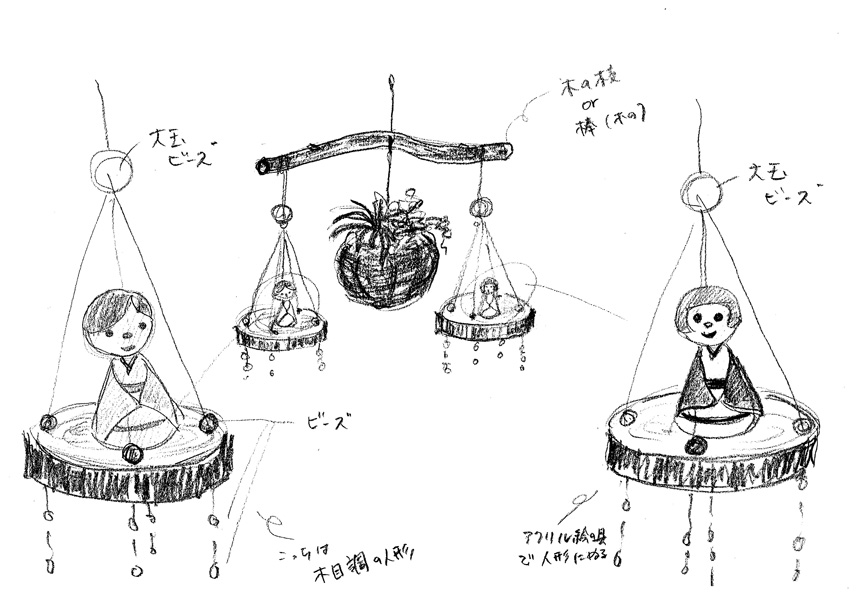 木の枝
or
棒(木の)
大玉
ビーズ
大玉
ビーズ
ビーズ
こっちは
木目調の人形
アクリル絵の具
で人形にぬる